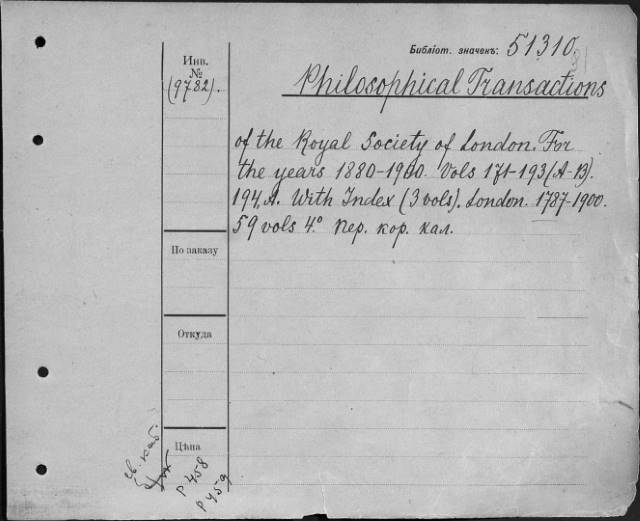 Библіот. значекъ: 51310.
Инв.
№
(9782).
Philosophical Transactions
of the Royal Society of London. For
the years 1880-1900. Vols 171-193 (A-B).
194, A. With Index (3 vols). London. 1787-1900.
59 vols 4.º пер. кор. кал.
По заказу
Откуда
Цѣна
каб.
P 458
P 459